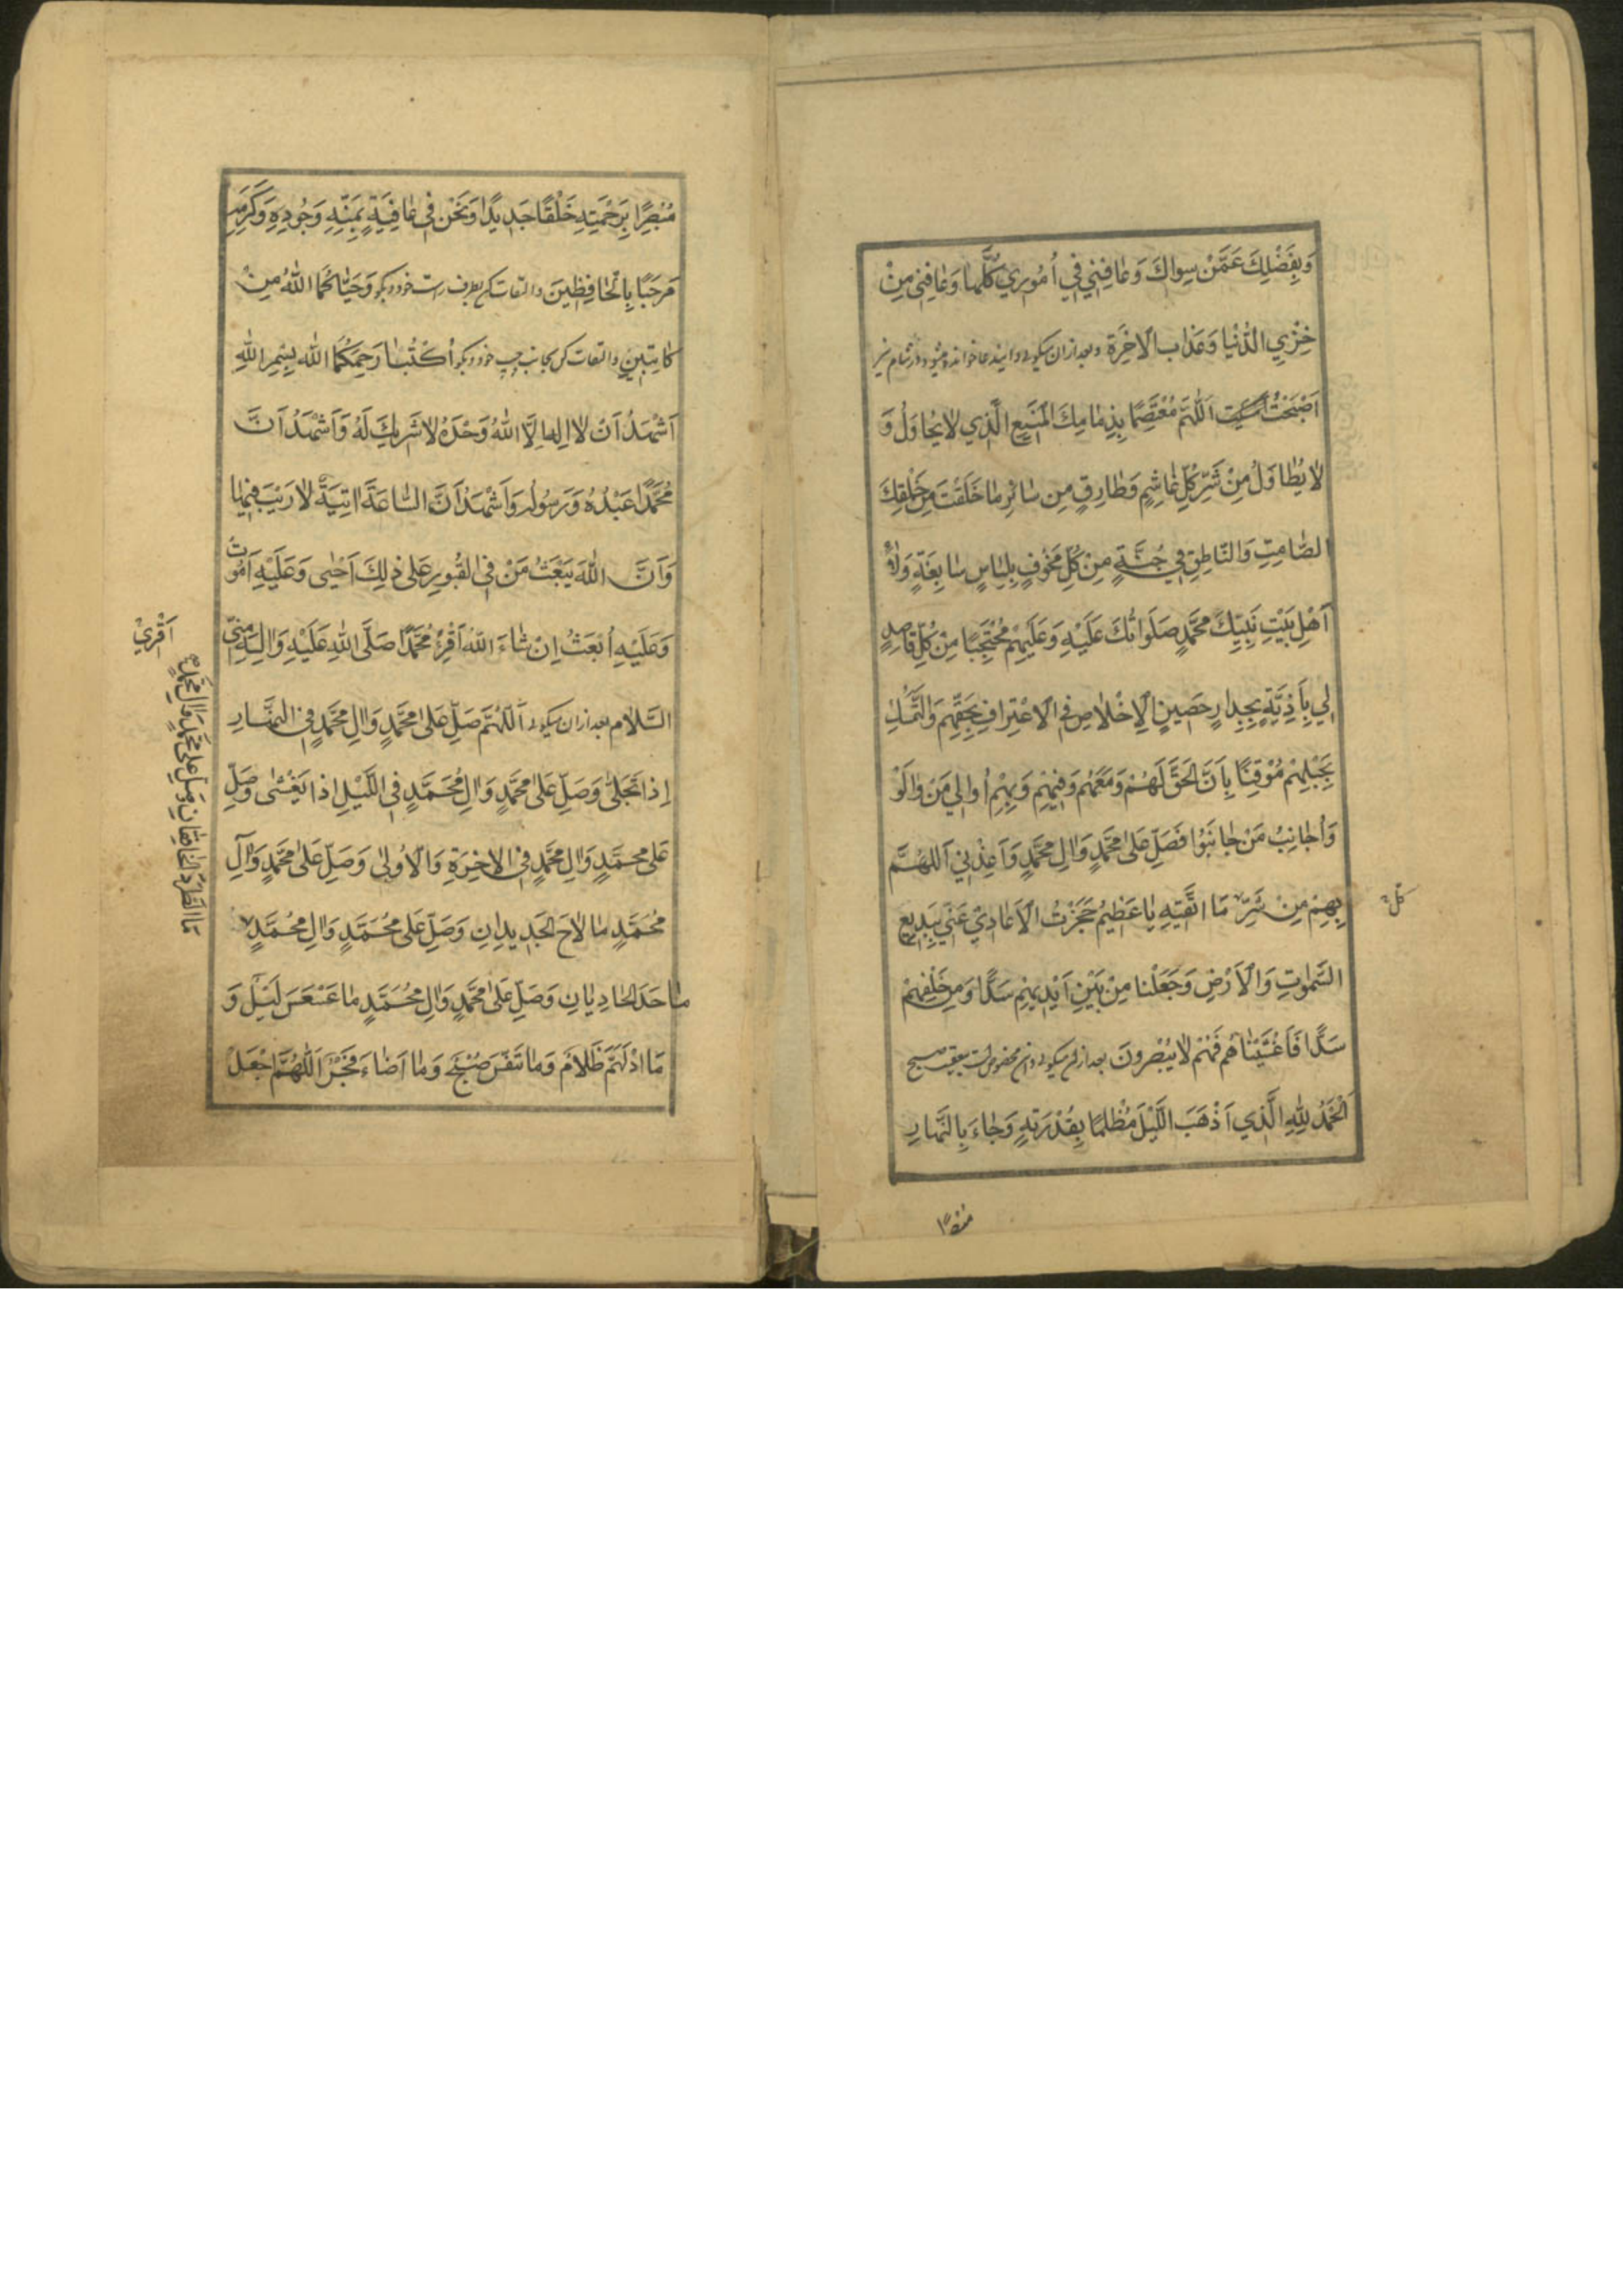 وَبِفَضْلِكَ عَمَّنْ سِواكَ وَعافِنِي فِي اُمُورِي كُلَّها وَعافِنِي مِنْ
خِزْيِ الدُّنْيا وَعَذابِ الاخِرَةِ وبعد ازان میکوید و اینها خوانده میشود در شام نیز
اَصْبَحْتُ اَمْسَيْتُ اَللّهُمَّ مُعْتَصِمًا بِذِمامِكَ الْمَنيعِ الَّذِي لايُحاوَلُ وَ
لا يُطاوَلُ مِنْ شَرِّ كُلِّ غاشِمٍ وَطارِقٍ مِن سائِرِ ما خَلَقْتَ مِنْ خَلْقِكَ
الصّامِتِ وَالنّاطِقِ فِي جُنَّةٍ مِنْ كُلِّ مَخُوفٍ بِلِباسٍ سابِغَةٍ وَلاءِ
اَهْلِ بَيْتِ نَبِيِّكَ مُحَمَّدٍ صَلَواتُكَ عَلَيْهِ وَعَلَيْهِمْ مُحْتَجِبًا مِنْ كُلِّ قاصِدٍ
لِي بِاَذِيَّةٍ بِجِدارٍ حَصِينٍ الْاِخْلاصِ فِي الْاعْتِرافِ بِحَقِّهِم وَالتَّمَسُّكِ
بِحَبْلِهِمْ مُوْقِنًا بِاَنَّ الْحَقَّ لَهُمْ وَمَعَهُم وَفِيْهِمْ وَبِهِمْ اُوالِي مَنْ والَوْ
وَاُجانِبُ مَنْ جانَبُوا فَصَلِّ عَلى مُحَمَّدٍ وَالِ مُحَمَّدٍ وَاَعِذْنِي اَللّهُمَّ
بِهِمْ مِنْ شَرِّ مَا اتَّقيَتِهِ ياعَظيمُ حَجَزْتُ الْاَعادِيْ عَنّي بِبَدِيعِ
كُلِّ
السَّمواتِ وَالْاَرْضِ وَجَعَلْنا مِنْ بَيْنِ اَيْدِيهِمْ سَدًّا وَمِنْ خَلْفِهِمْ
سَدًّا فَاَغْشَيْناهُم فَهُمْ لايُبْصِرونَ بعد ازان میکوید و ان مخصوص است بتعقیب صبح
اَلْحَمْدُ لِلّهِ الَّذِي اَذْهَبَ اللَّيْلَ مُظْلِمًا بِقُدْرَتِهِ وَجاءَ بِالنَّهارِ
مُبْصِرًا
مُبْصِرًا بِرَحْمَتِهِ خَلْقًا جَدِيدًا وَنَحْنُ في عافِيَةٍ بِمَنِّهِ وَجُودِهِ وَكَرَمِهِ
مَرحَبًا بِالْحافِظِينَ و التفات کن بطرف راست خود و بکو وَحَيّاكُمَا اللهُ مِنْ
كاتِبَينِ و التفات کن بجانب چپ خود و بکو اُكْتُبا رَحِمَكُمَا الله بِسْمِ اللهِ
اَشْهَدُ اَنْ لا اِلهَ اِلَّا اللهُ وَحْدَهُ لا شَرِيكَ لَهُ وَاَشْهَدُ اَنَّ
مُحَمَّدًا عَبْدُهُ وَرَسُولُه وَاَشْهَدُ اَنَّ السّاعَةَ اتِيَةٌ لا رَيْبَ فِيْها
وَاَنَّ اللهَ يَبْعَثُ مَنْ فِي الْقُبُورِ عَلى ذلِكَ اَحْيى وَعَلَيْهِ اَمُوتُ
وَعَلَيْهِ اُبْعَثُ اِنْ شاءَ اللهُ اَقْرِءْ مُحَمَّدًا صَلَّى اللهِ عَلَيْهِ وَالِهِ مِنّي
اَقْرِئْ
السَّلام بعد ازان میکوید اَللّهُمَّ صَلِّ عَلى مُحَمَّدٍ وَالِ مُحَمَّدٍ فِي النَّهارِ
اِذا تَجَلّى وَصَلِّ عَلى مُحَمَّدٍ وَالِ مُحَمَّدٍ فِي اللَّيْلِ اِذا يَغْشى وَصَلِّ
عَلى مُحَمَّدٍ وَالِ مُحَمَّدٍ فِي الاخِرَةِ وَالْاُولى وَصَلِّ عَلى مُحَمَّدٍ وَالِ
مُحَمَّدٍ ما لاحَ الْجَدِيدانِ وَصَلِّ عَلى مُحَمَّدٍ وَالِ مُحَمَّدٍ
ما حَدَا الحادِيانِ وَصَلِّ عَلى مُحَمَّدٍ وَالِ مُحَمَّدٍ ما عَسْعَسَ لَيْلٌ وَ
مَا ادْلَهَمَّ ظَلامٌ وَما تَنَفَّسَ صُبْحٌ وَما اَضاءَ فَجْرٌ اَللّهُمَّ اجْعَلْ
مَا اطَّرَدَ الْخافِقانِ وَصَلِّ عَلى مُحَمَّدٍ وَالِ مُحَمَّدٍ